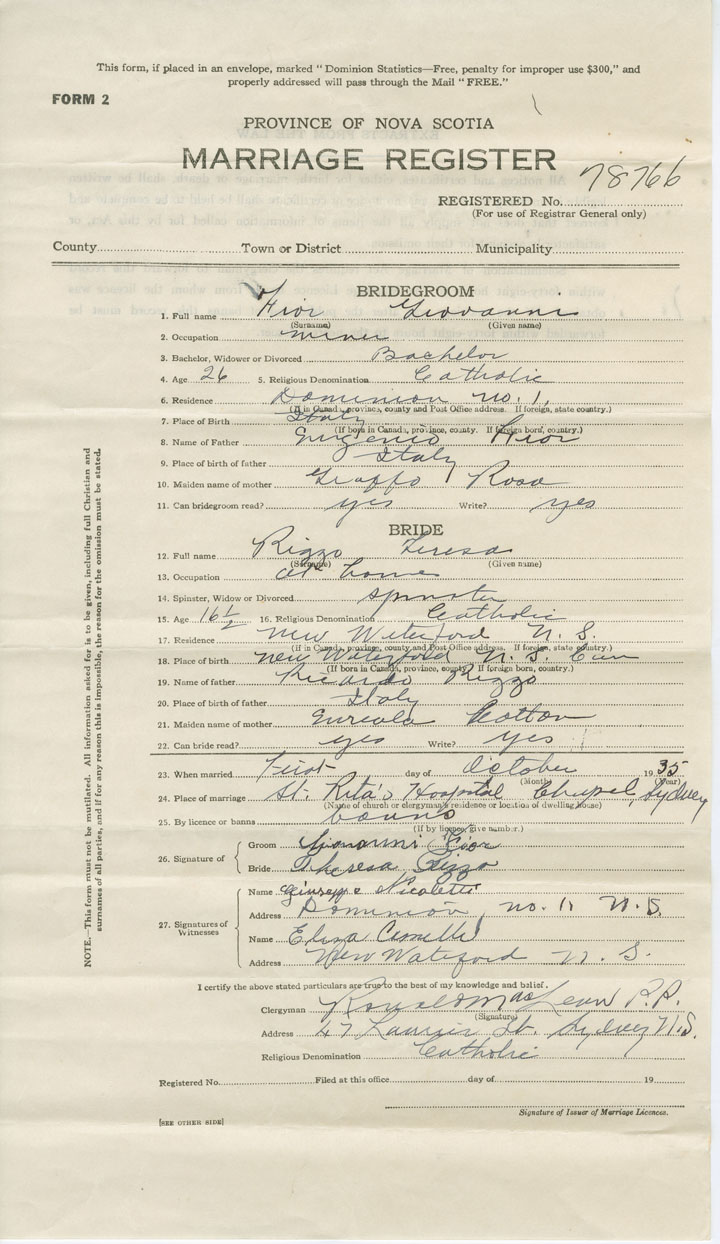 This form, if placed in an envelope, marked "Dominion Statistics—Free, penalty for improper use $300," and
properly addressed will pass through the Mail "FREE."
FORM 2
PROVINCE OF NOVA SCOTIA
MARRIAGE REGISTER
REGISTERED No. 78766
(For use of Registrar General only)
County Town or District Municipality
BRIDEGROOM
1. Full name Fior Giovanni
(Surname) (Given name)
2. Occupation miner
3. Bachelor, Widower or Divorced Bachelor
4. Age 26 5. Religious Denomination Catholic
6. Residence Dominion No. 1,
(If in Canada, province, county and Post Office address. If foreign, state country.)
7. Place of Birth Italy
(If born in Canada, province, county. If foreign born, country.)
8. Name of Father Eugenio Fior
9. Place of birth of father Italy
10. Maiden name of mother Rosa
11. Can bridegroom read? yes Write? yes
BRIDE
12. Full name Rizzo Teresa
(Surname) (Given name)
13. Occupation at home
14. Spinster, Widow or Divorced spinster
15. Age 16½ 16. Religious Denomination Catholic
17. Residence New Waterford N. S.
(If in Canada, province, county and Post Office address. If foreign, state country.)
18. Place of birth New Waterford N. S. Can
(If born in Canada, province, county. If foreign born, country.)
19. Name of father Ricardo Rizzo
20. Place of birth of father Italy
21. Maiden name of mother Cotton
22. Can bride read? yes Write? yes
23. When married First day of October 1935
(Month) (Year)
24. Place of marriage St. Rita's Hospital Chapel, Sydney
(Name of church or clergyman's residence or location of dwelling house)
25. By licence or banns banns
(If by licence, give number.)
26. Signature of
Groom Giovanni Fior
Bride Theresa Rizzo
27. Signatures of Witnesses
Name Giuseppe Nicoletti
Address Dominion, No. 1, N. S.
Name Eliza
Address New Waterford N. S.
I certify the above stated particulars are true to the best of my knowledge and belief.
Clergyman Ronald MacLean P.P.
(Signature)
Address 47 St. Sydney N.S.
Religious Denomination Catholic
Registered No. Filed at this office day of 19
Signature of Issuer of Marriage Licences.
[SEE OTHER SIDE]
NOTE.—This form must not be mutilated. All information asked for is to be given, including full Christian and
surnames of all parties, and if for any reason this is impossible, the reason for the omission must be stated.